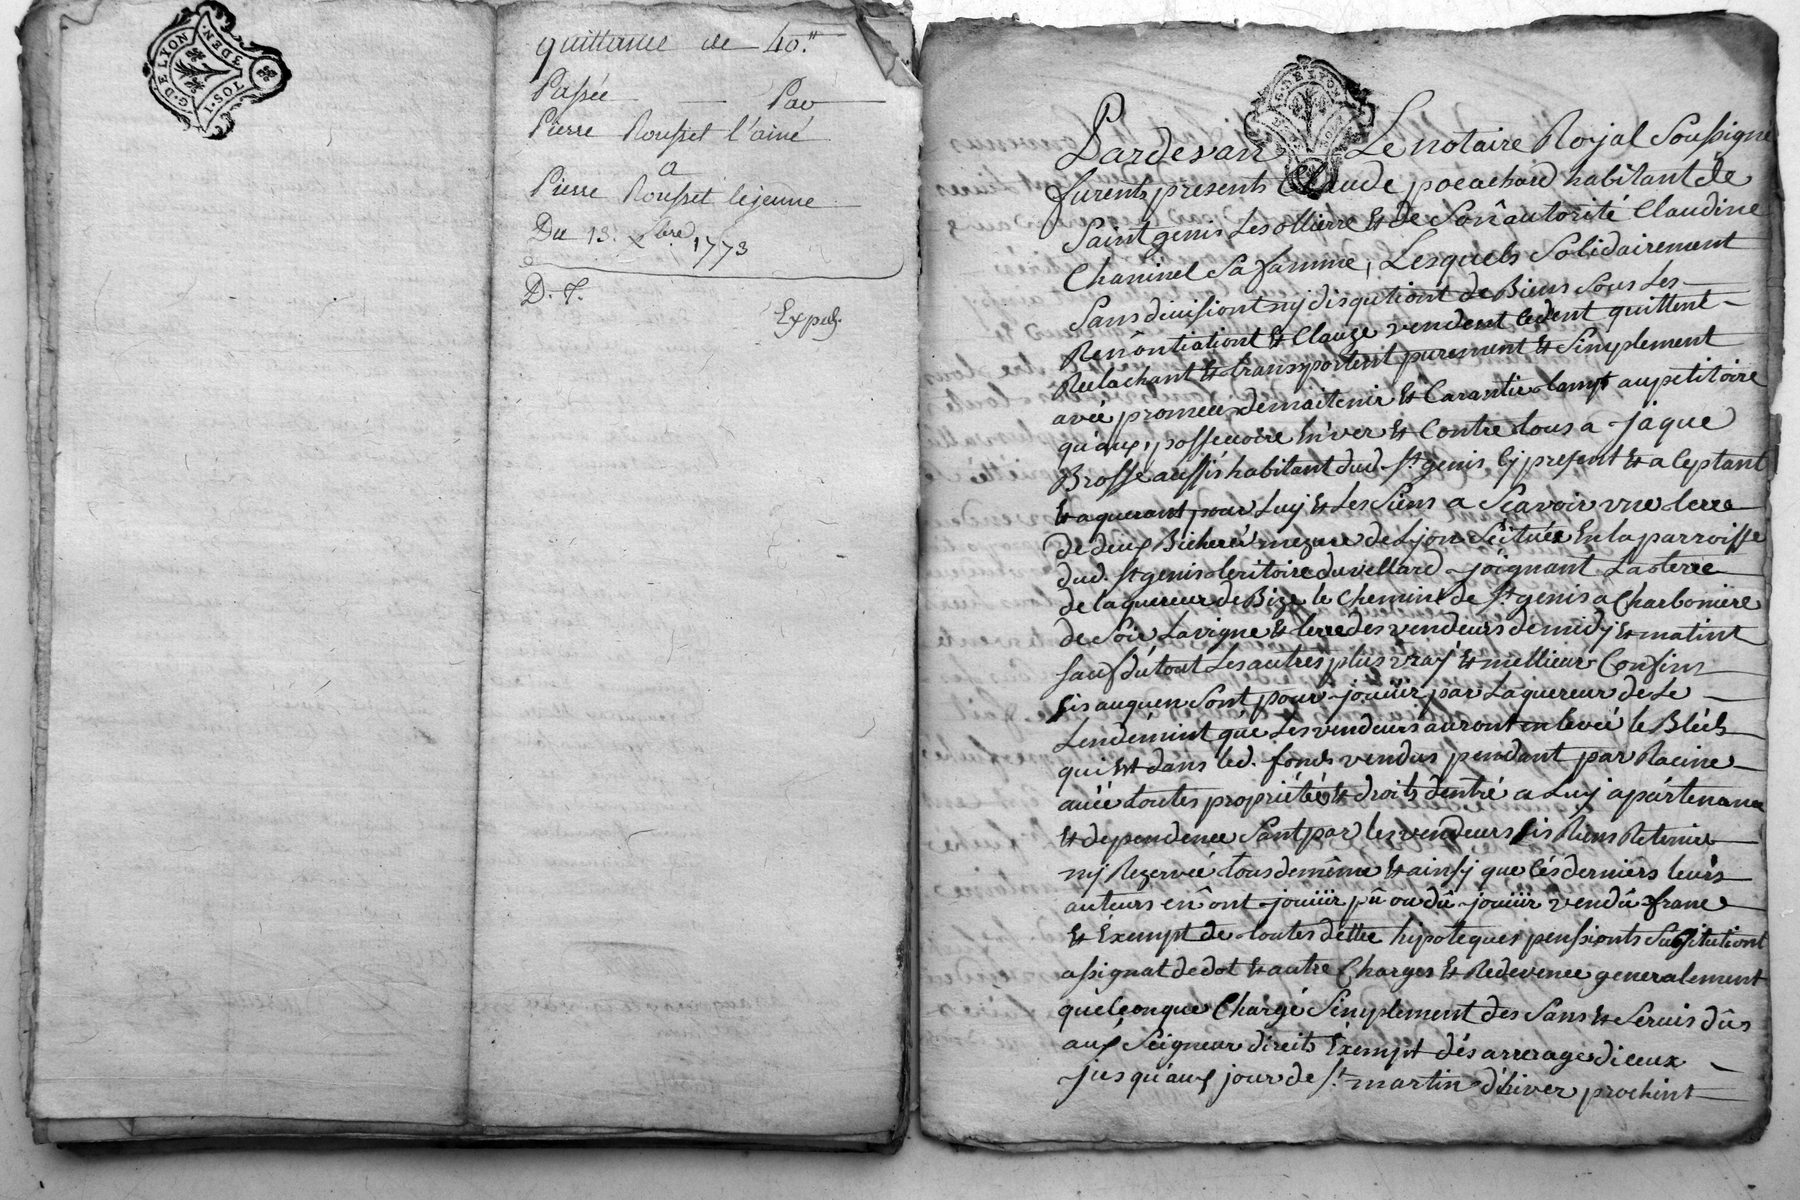 G·DE LYON
TOS·1
3 DEN·
quittance de 40.ᵗᵗ
Passée — Par
Pierre Rousset l'ainé
a
Pierre Rousset lejeune
Du 13. xbre 1773
D. F.
Expéd.
G·DE LYON
Pardevant Le notaire Royal Soussigne
furents presents Claude poeachard habitant de
Saint genis Les ollierre & de Son autorité Claudine
Chaninel Sa famme, Lesquels Solidairement
Sans divisiont nij disqutiont de Biens Sous Les
Renontiationt & Clauze vendent Cedent quittent
Relachant & transportent purement & Simplement
avec promece de maitenir & Garantie tampt au petitoire
qu'aux possessoire Enver & Contre tous a jaque
Brosse aussis habitant dud. St genis Cij present & a Ceptant
& aquerant pour Luij & Les Siens a Scavoir vne terre
de deux Bicheréé mezure de Lijon Scituéé En la parroisse
dud. St genis teritoire du vellard joignant La terre
de laquereur de Bize le Chemint de St genis a Charboniere
de Soir La vigne & terre des vendeurs de midij & matint
sauf du tout Les autres plus vraij & mellieur Confins
sis auquen Sont pour joüir par Laquereur de Le
Lendemint que Les vendeurs auront enlevéé le Bléds
qui Est dans led. fonds vendus pendant par Racine
avéc toutes propriétéé & droits d'entré a Luij apartenance
& dependence Sant par les vendeurs sis Riens Retenir
nij Rezervéé tous de même & ainsij que Cés derniers leurs
auteurs en ont joüir pû ou dû joüir vendû franc
& Exempt de toutes dette hypoteques pensionts Substitutiont
assignat de dot & autre Charges & Redevence generalement
quelconque Chargé Simplement des Sans & Servis dûs
aux Seigneur direits Exempt dés arrerages diceux
jusqu'aux jour de St martin d'hiver prochint